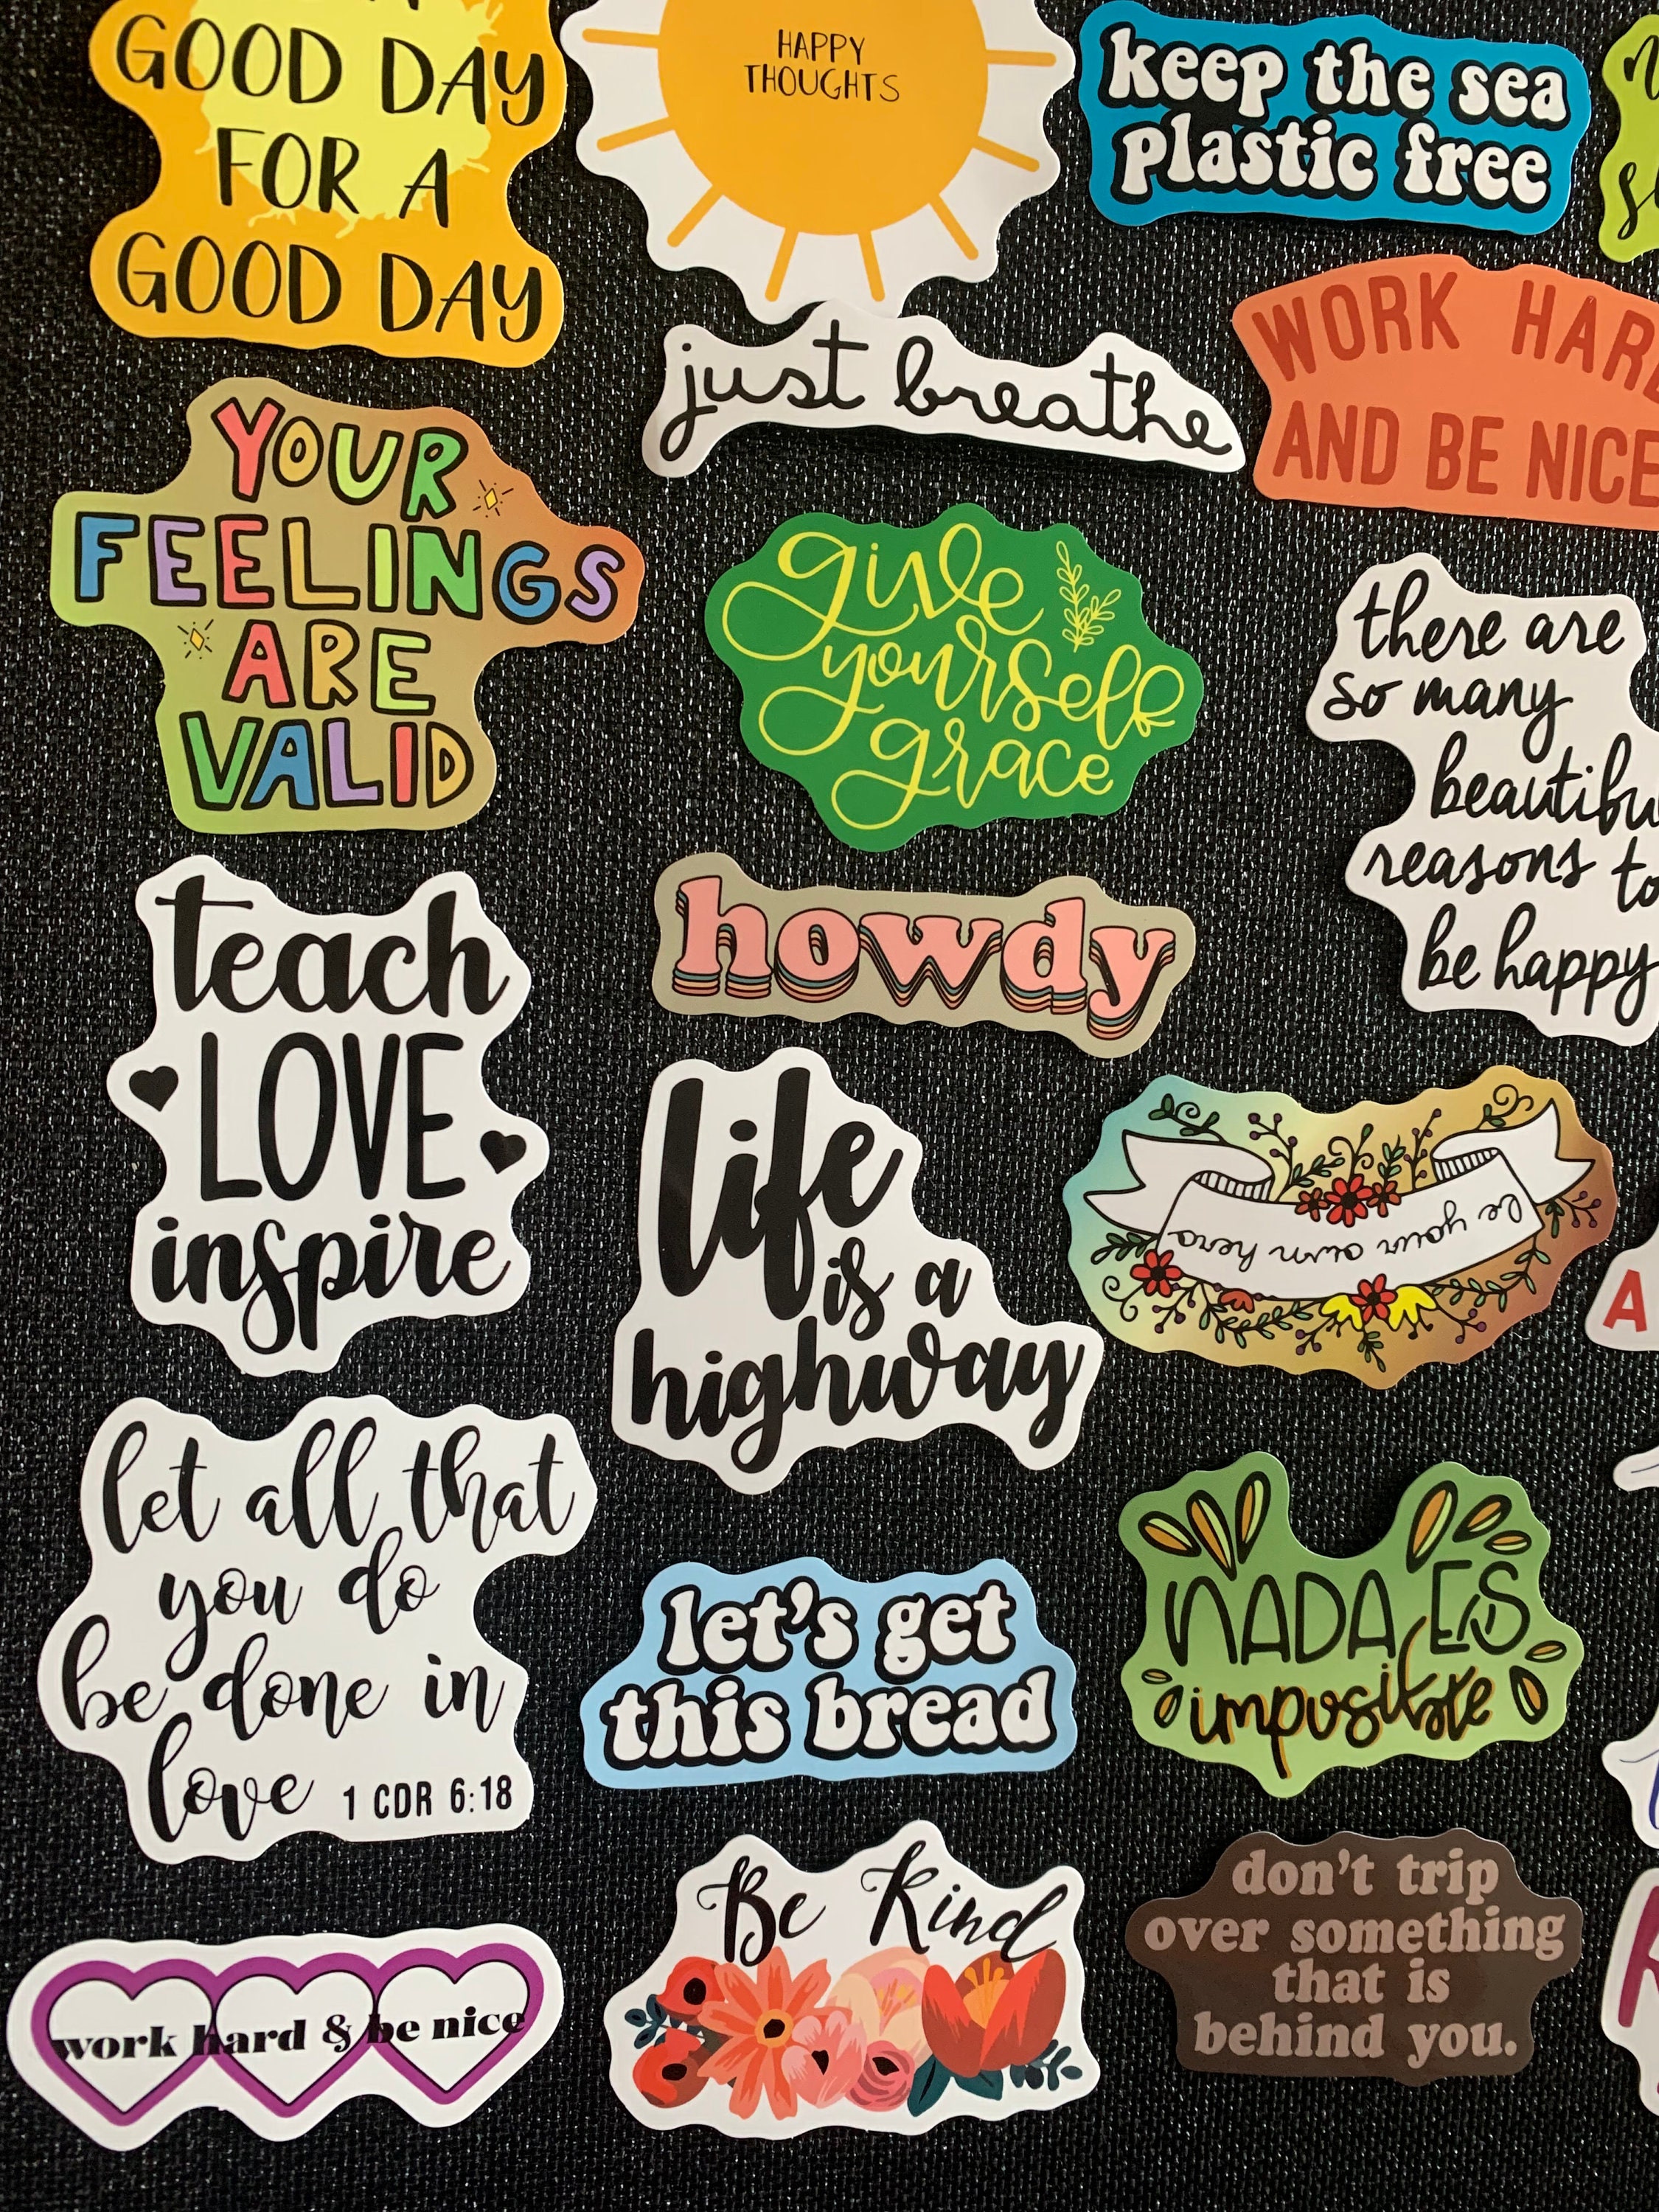 GOOD DAY
FOR A
GOOD DAY
HAPPY
THOUGHTS
keep the sea
plastic free
just breathe
WORK HARD
AND BE NICE
YOUR
FEELINGS
ARE
VALID
give
yourself
grace
there are
so many
beautifu
reasons to
be happy
teach
LOVE
inspire
howdy
life
is a
highway
be your own hero
A
let all that
you do
be done in
love 1 CDR 6:18
let's get
this bread
NADA ES
imposible
work hard & be nice
Be Kind
don't trip
over something
that is
behind you.